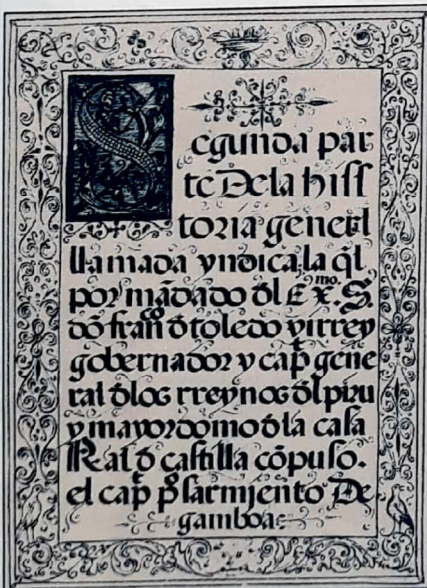 Segunda par
te Dela hiſſ
toria generl
llamada yndica, la ql̃
por mãdado ðl Exᵐᵒ. S.
dõ franᶜᵒ ð toledo virrey
gobernador y capᵗ gene
ral ðlos rreynos ðl piru
y mayordomo ðla caſa
Real ð caſtilla cõpuſo.
el capᵗ pº sarmjento De
gamboa